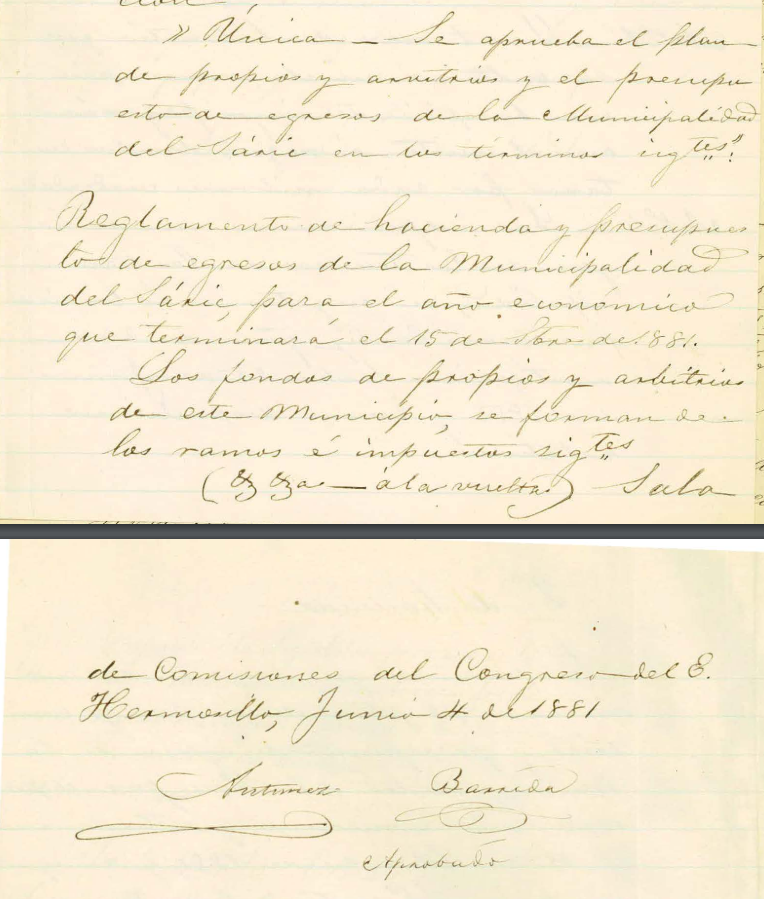 ción,
» Única – Se aprueba el plan
de propios y arvitrios y el presupu
esto de egresos de la Municipalidad
del Sáric en los términos sigtes":
Reglamento de hacienda y presupues
to de egresos de la Municipalidad
del Sáric, para el año económico
que terminará el 15 de Sbre de 1881.
Los fondos de propios y arbitrios
de este Municipio, se forman de
los ramos é impuestos sigtes
( — á la vuelta) Sala
de Comisiones del Congreso del E.
Hermosillo, Junio 4 de 1881
Barreda
Aprobado